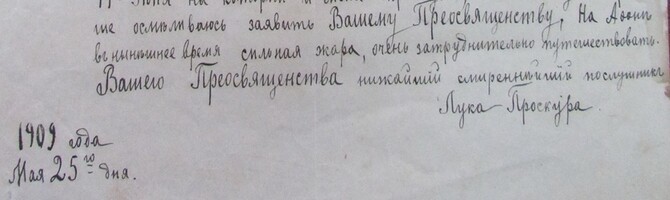 ше осмѣливаюсь заявить Вашему Преосвященству, На Аѳонѣ
въ нынѣшнее время сильная жара, очень затруднительно путешествовать.
Вашего Преосвященства нижайшій смиреннѣйшій послушникъ
Лука Проскура.
1909 года
Мая 25го дня.